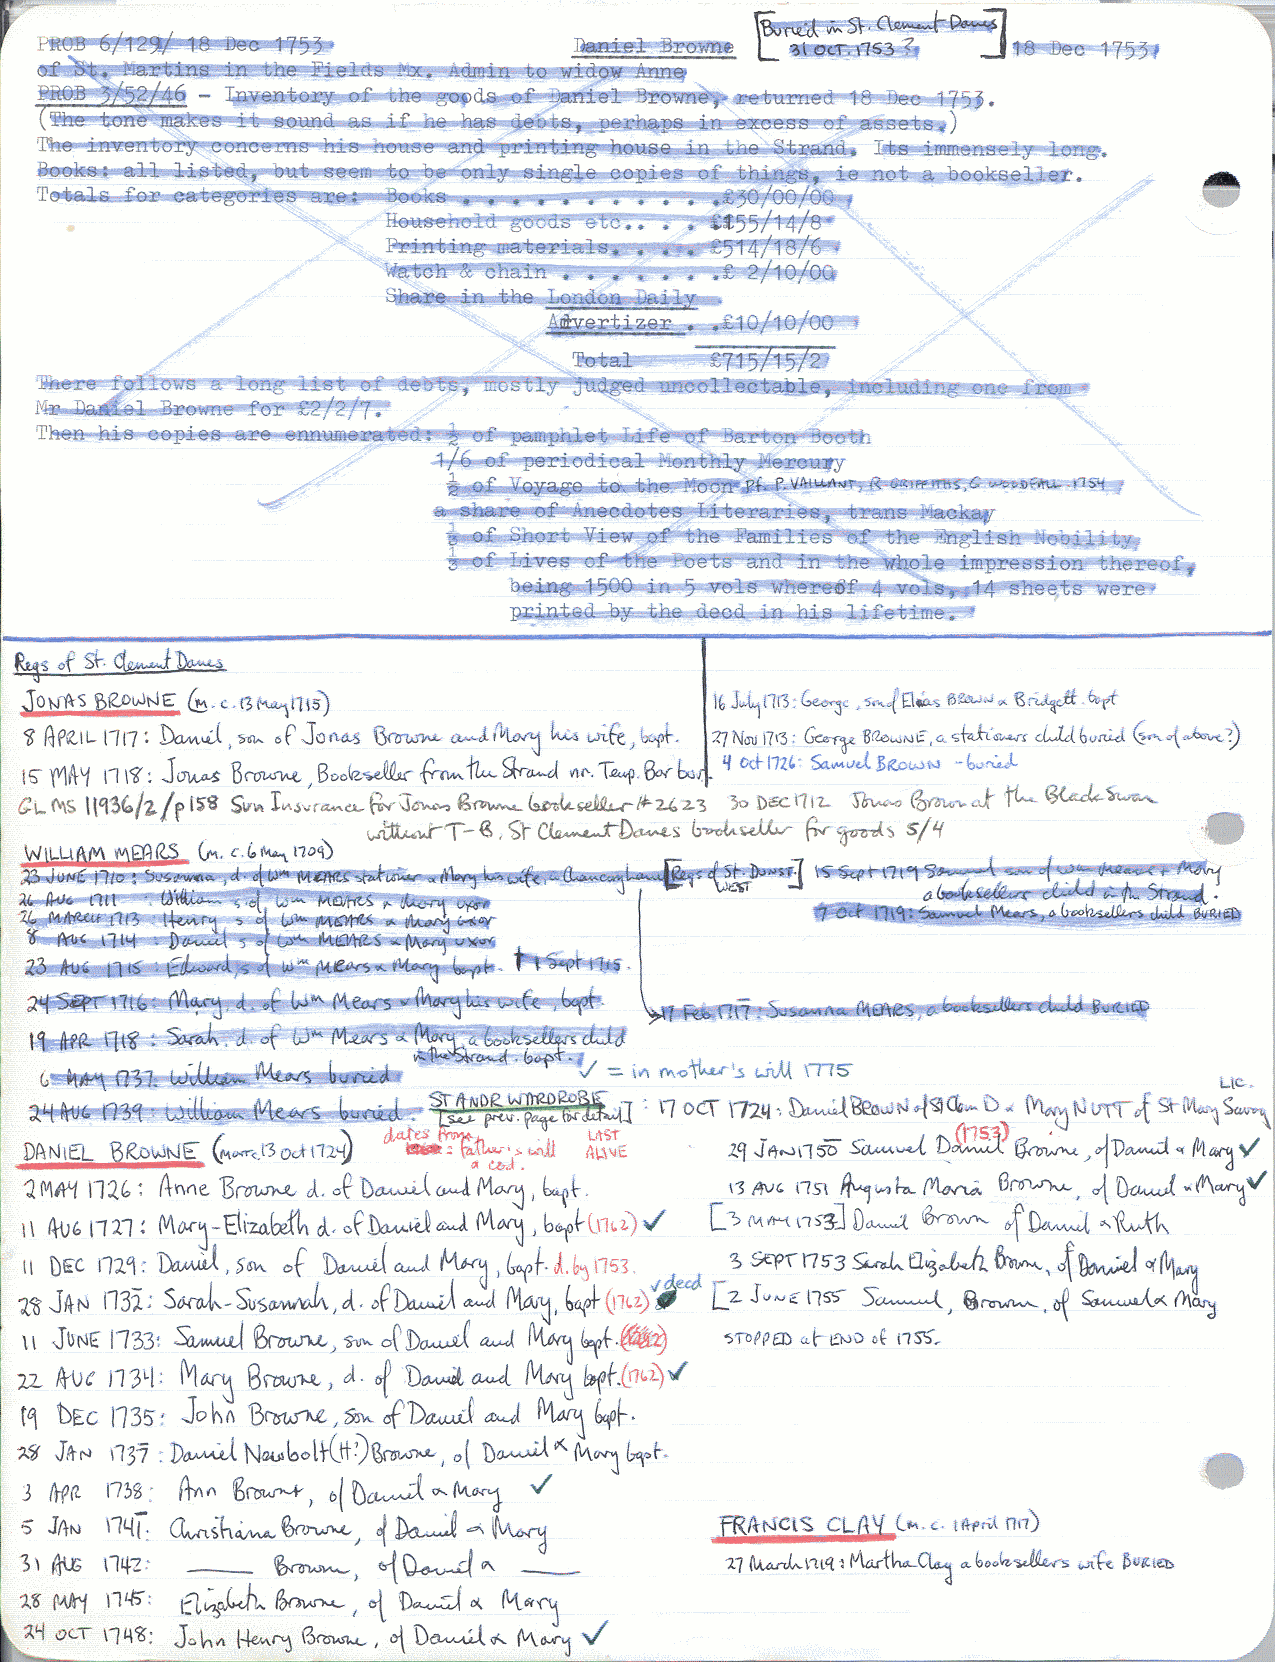 [Buried in St. Clement Danes
31 OCT. 1753 ?]
PROB 6/129/ 18 Dec 1753 Daniel Browne 18 Dec 1753
of St. Martins in the Fields Mx. Admin to widow Anne
PROB 3/52/46 - Inventory of the goods of Daniel Browne, returned 18 Dec 1753.
(The tone makes it sound as if he has debts, perhaps in excess of assets.)
The inventory concerns his house and printing house in the Strand. Its immensely long.
Books: all listed, but seem to be only single copies of things, ie not a bookseller.
Totals for categories are: Books . . . . . . . . . . .£30/00/00
Household goods etc.. . . £155/14/8
Printing materials. . . . £514/18/6
Watch & chain . . . . . . .£ 2/10/00
Share in the London Daily
Advertizer . .£10/10/00
Total £715/15/2
There follows a long list of debts, mostly judged uncollectable, including one from
Mr Daniel Browne for £2/2/7.
Then his copies are ennumerated: ½ of pamphlet Life of Barton Booth
1/6 of periodical Monthly Mercury
½ of Voyage to the Moon Pf. P. VAILLANT, R GRIFFITHS, G WOODFALL 1754
a share of Anecdotes Literaries, trans Mackay
of Short View of the Families of the English Nobility
⅓ of Lives of the Poets and in the whole impression thereof,
being 1500 in 5 vols whereof 4 vols, 14 sheets were
printed by the decd in his lifetime.
Regs of St. Clement Danes
JONAS BROWNE (m. c. 13 May 1715)
8 APRIL 1717: Daniel, son of Jonas Browne and Mary his wife, bapt.
15 MAY 1718: Jonas Browne, Bookseller from the Strand nr. Temp. Bar bur.
16 July 1713: George, son of Elias BROWN & Bridgett. bapt
27 Nov 1713: George BROWNE, a stationers child buried (son of above?)
4 Oct 1726: Samuel BROWN - buried
GL MS 11936/2/p158 Sun Insurance for Jonas Browne bookseller # 2623 30 DEC 1712 Jonas Brown at the Black Swan
without T-B, St Clement Danes bookseller for goods 5/4
WILLIAM MEARS (m. c. 6 May 1709)
23 JUNE 1710: Susanna, d. of Wm MEARS stationer & Mary his wife, in Chancery lane
26 AUG 1711 : William s of Wm MEARS & Mary uxor
26 MARCH 1713: Henry s of Wm MEARS & Mary uxor
8 AUG 1714 : Daniel s of Wm MEARS & Mary uxor
23 AUG 1715: Edward, s of Wm Mears & Mary bapt. † 1 Sept 1715.
24 SEPT 1716: Mary, d. of Wm Mears & Mary his wife, bapt.
19 APR 1718: Sarah, d. of Wm Mears & Mary, a booksellers child
in the Strand. bapt.
6 MAY 1737: William Mears buried
24 AUG 1739: William Mears buried.
[Regs of St. DUNST. WEST] 15 Sept 1719 Samuel son of Wm Mears & Mary
a booksellers child in the Strand.
7 Oct 1719: Samuel Mears, a booksellers child BURIED
17 Feb 1717: Susanna MEARS, a booksellers child BURIED
✓ = in mother's will 1775
ST ANDR WARDROBE
[see prev. page for detail] : 17 OCT 1724: Daniel BROWN of St Clem D & Mary NUTT of St Mary Savoy
LIC.
DANIEL BROWNE (marr. 13 Oct 1724)
dates from
: father's will
& cod.
LAST
ALIVE
2 MAY 1726: Anne Browne d. of Daniel and Mary, bapt.
11 AUG 1727: Mary-Elizabeth d. of Daniel and Mary, bapt (1762) ✓
11 DEC 1729: Daniel, son of Daniel and Mary, bapt. d. by 1753.
28 JAN 1732: Sarah-Susannah, d. of Daniel and Mary, bapt (1762) ✓ decd
11 JUNE 1733: Samuel Browne, son of Daniel and Mary bapt.
22 AUG 1734: Mary Browne, d. of Daniel and Mary bapt. (1762) ✓
19 DEC 1735: John Browne, son of Daniel and Mary bapt.
28 JAN 1737: Daniel Newbolt (H?) Browne, of Daniel & Mary bapt.
3 APR 1738: Ann Browne, of Daniel & Mary ✓
5 JAN 1741: Christiana Browne, of Daniel & Mary
31 AUG 1742: ____ Browne, of Daniel & ____
28 MAY 1745: Elizabeth Browne, of Daniel & Mary
24 OCT 1748: John Henry Browne, of Daniel & Mary ✓
(1753)
29 JAN 1750 Samuel Daniel Browne, of Daniel & Mary ✓
13 AUG 1751 Augusta Maria Browne, of Daniel & Mary ✓
[3 MAY 1753] Daniel Brown of Daniel & Ruth
3 SEPT 1753 Sarah Elizabeth Browne, of Daniel & Mary
[2 JUNE 1755 Samuel, Browne, of Samuel & Mary
STOPPED at END of 1755.
FRANCIS CLAY (m. c. 1 April 1717)
27 March 1719: Martha Clay a booksellers wife BURIED